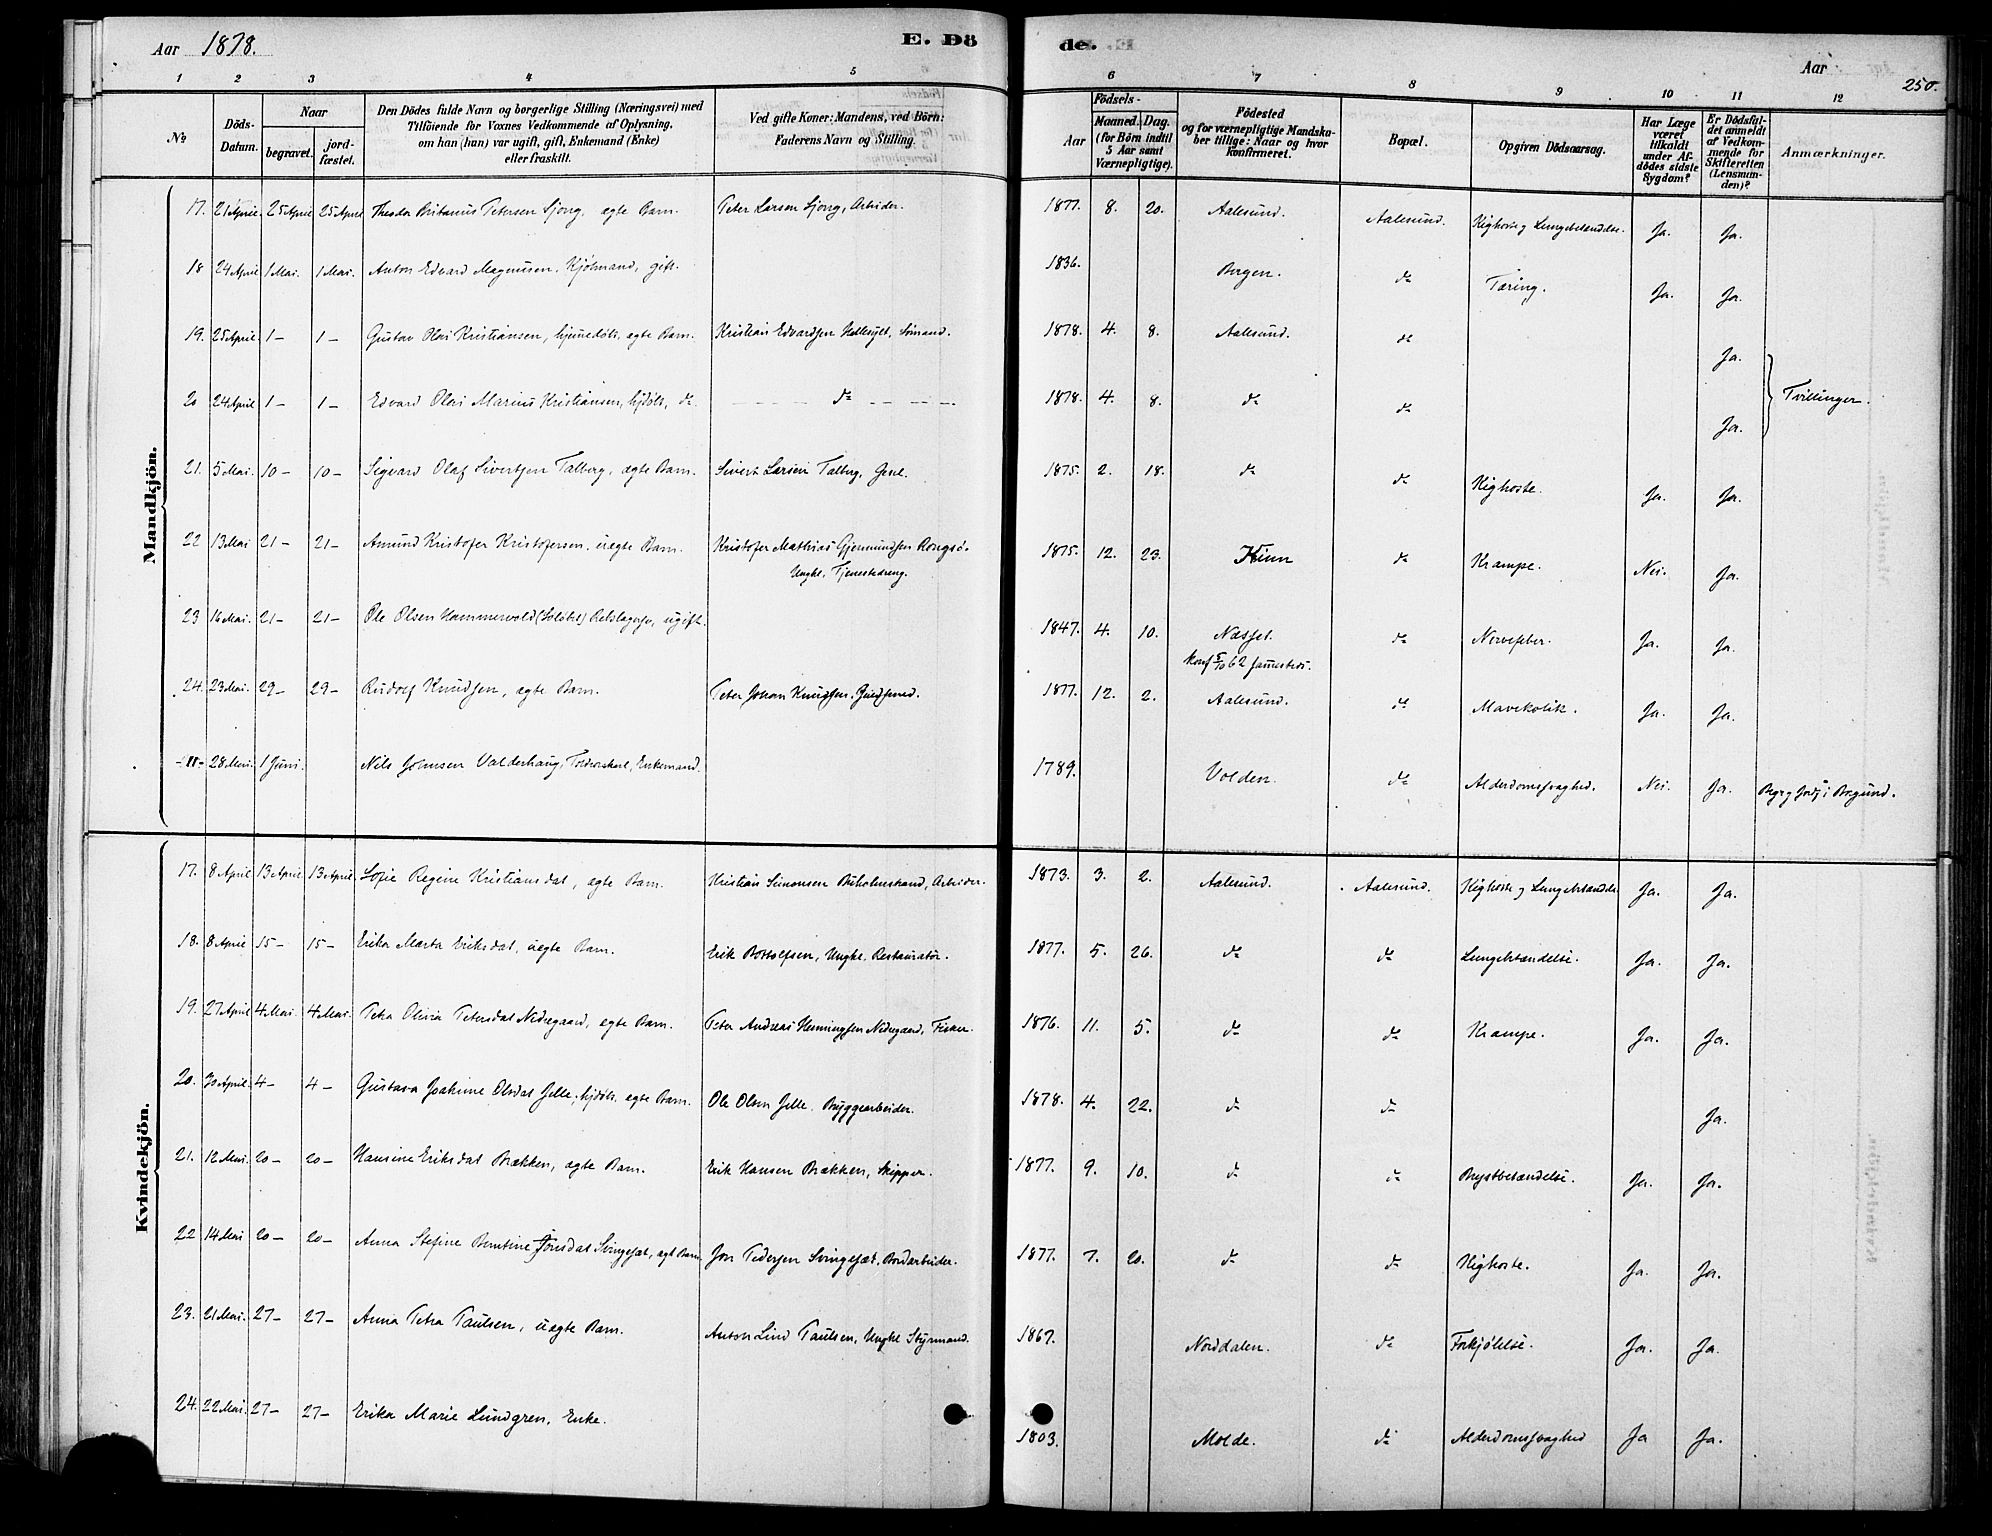 Aar 1878.
E. Dö
de.
Aar
250.
1 2 3 4 5 6 7 8 9 10 11 12
No
Döds-Datum.
Naar
begravet.
jord-fæstet.
Den Dödes fulde Navn og borgerlige Stilling (Næringsvei) med
Tilföiende for Voxnes Vedkommende af Oplysning,
om han (hun) var ugift, gift, Enkemand (Enke)
eller fraskilt.
Ved gifte Koner: Mandens, ved Börn:
Faderens Navn og Stilling.
Födsels-
Aar
Maaned. Dag.
(for Börn indtil
5 Aar samt
Værnepligtige).
Födested
og for værnepligtige Mandska-
ber tillige: Naar og hvor
konfirmeret.
Bopæl.
Opgiven Dödsaarsag.
Har Læge
været
tilkaldt
under Af-
dödes sidste
Sygdom?
Er Dödsfal-
det anmeldt
af Vedkom-
mende for
Skifteretten
(Lensman-
den)?
Anmærkninger.
Mandkjön.
17. 21 April. 25 April 25 April Theodor Petersen Sjong, egte Barn. Peter Larsen Sjong, Arbeider. 1877. 8. 20. Aalesund. Aalesund. Kighoste og Lungebetændelse. Ja. Ja.
18 24 April 1 Mai. 1 Mai. Anton Edvard Magnusen, Kjøbmand, gift. 1836. Bergen. do Tæring. Ja. Ja.
19. 25 April. 1 — 1 — Gustav Olai Kristiansen, hjemedøbt, egte Barn. Kristian Edvardsen Hellesylt, Sømand. 1878. 4. 8. Aalesund. do Ja.
20 24 April 1 — 1 — Edvard Olai Marius Kristiansen, hjdøbt, do. do 1878. 4. 8. do do Ja.
Tvillinger.
21. 5 Mai. 10 — 10 — Sigvard Olaf Sivertsen Talberg, egte Barn. Sivert Larsen Talberg, Gesel. 1875. 2. 18. do do Kighoste. Ja. Ja.
22 13 Mai 21 — 21 — Amund Kristofer Kristofersen, uegte Barn. Kristofer Mathias Gjermundsen Rongsø.
Ungkl. Tjenestedreng. 1875. 12. 23. Kinn do Krampe. Nei. Ja.
23 16 Mai. 21 — 21 — Ole Olsen Hammervold, ugift. 1847. 4. 10. Nesset.
konf 5/10 62 sammesteds. do Nervefeber. Ja. Ja.
24. 23 Mai. 29 — 29 — Rudolf Knudsen, egte Barn. Peter Johan Knudsen, Guldsmed. 1877. 12. 2. Aalesund. do Mavekolik. Ja. Ja.
— " — 28 Mai. 1 Juni. Nils Johnsen Valderhaug, Toldrorskarl, Enkemand. 1789. Volden. do Alderdomssvaghed. Nei. Ja. Begr. og jordf. i Borgund.
Kvindekjön.
17. 8 April 13 April 13 April. Sofie Regine Kristiansdat, egte Barn. Kristian Simonsen Buholmstrand, Arbeider. 1873. 3. 2. Aalesund. Aalesund. Kighoste og Lungebetændelse. Ja. Ja.
18. 8 April 15 — 15 — Erika Marta Eriksdat, uegte Barn. Erik Bottolfsen, Ungkl. Restauratør. 1877. 5. 26. do do Lungebetændelse. Ja. Ja.
19. 27 April 4 Mai. 4 Mai. Petra Olivia Petersdat Nedregaard, egte Barn. Peter Andreas Henningsen Nedregaard, Fisker. 1876. 11. 5. do do Krampe. Ja. Ja.
20. 30 April. 4 — 4 — Gustava Joakime Olsdat Jelle, hjdøbt, egte Barn. Ole Olsen Jelle. Bryggearbeider. 1878. 4. 22. do do Ja.
21. 12 Mai. 20 — 20 — Hansine Eriksdat Brækken, egte Barn. Erik Hansen Brækken, Skipper. 1877. 9. 10. do do Brystbetændelse. Ja. Ja.
22 14 Mai 20 — 20 — Anna Stefine Berntine Jonsdat Svingeset, egte Barn. Jon Pedersen Svingeset, Bordarbeider. 1877. 7. 20. do do Kighoste. Ja. Ja.
23. 21 Mai. 27 — 27 — Anna Petra Paulsen, uegte Barn. Anton Lind Paulsen, Ungkl Styrmand. 1867. Norddalen. do Forkjølelse. Ja. Ja.
24. 22 Mai. 27 — 27 — Erika Marie Lundgren, Enke. 1803. Molde. do Alderdomssvaghed Ja Ja.